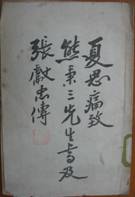 夏思痛致
熊秉三先生書及
張獻忠傳